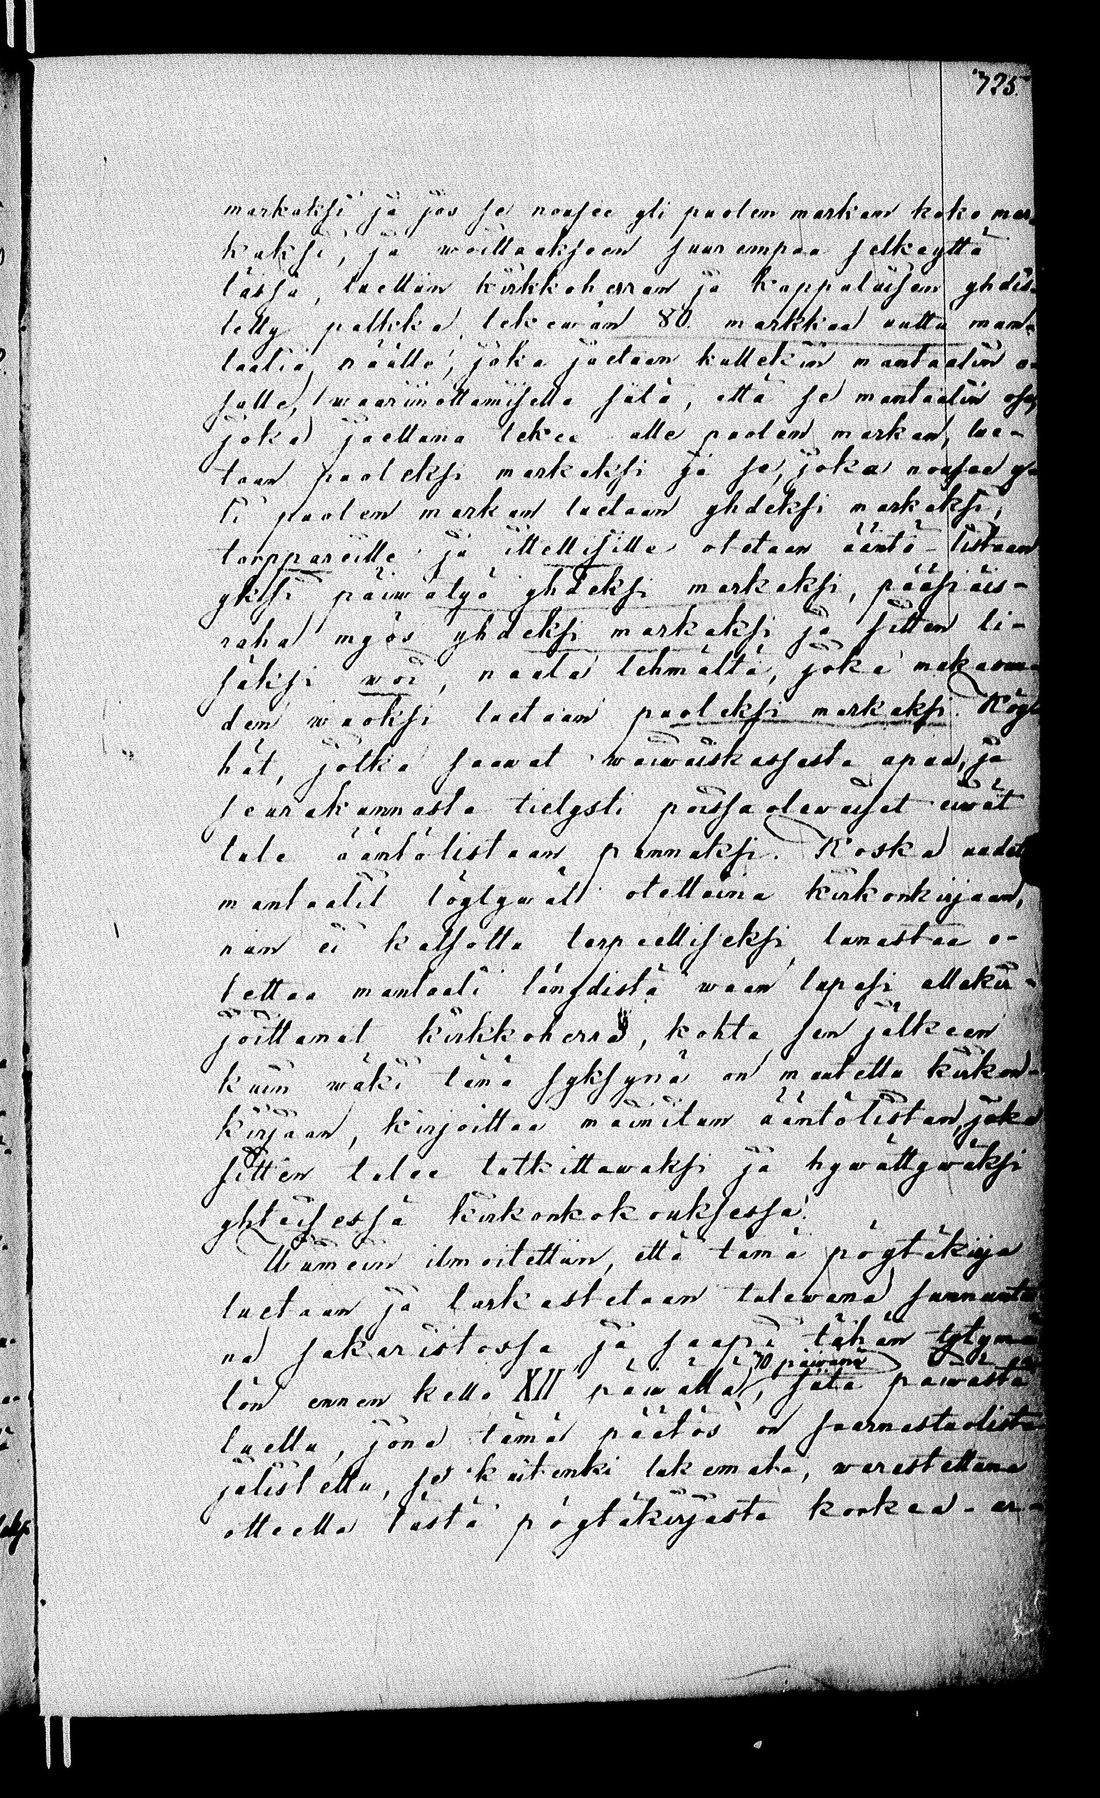 725.
markaksi ja jos se nousee yli puolen markan koko mar-
kaksi, ja woittaakseen suurempaa selkeyttä
tässä, luettiin kirkkoherran ja kappalaisen yhdis-
tetty palkka tekewän 80. markkaa uutta man-
taalia päälle, joka jaetaan kullekiin mantaalin o-
salle, waariinottamisella siitä, että se mantaalin osa,
joka jaettuna tekee alle puolen markan, lue-
taan puoleksi markaksi ja se, joka nousee y-
li puolen markan luetaan yhdeksi markaksi;
torppareille ja ittellisille otetaan ääntö-listaan
yksi päiwätyö yhdeksi markaksi, pääsiäis-
raha myös yhdeksi markaksi ja sitten li-
säksi woi, naula lehmältä, joka makaawu-
den wuoksi luetaan puoleksi markaksi. Köy-
hät, jotka saawat waiwaiskassasta apua, ja
seurakunnasta tietysti poissaolewaiset eiwät
tule ääntölistaan pannuksi. Koska uudet
mantaalit löytywät otettuina kirkonkirjaan,
niin ei katsottu tarpeelliseksi lunastaa o-
tettaa mantaali längdistä waan lupasi allekir-
joittanut kirkkoherra, kohta sen jälkeen
kuin wäki tänä syksynä on muutettu kirkon-
kirjaan, kirjoittaa mainitun ääntölistan, joka
sitten tulee tutkittawaksi ja hywättywäksi
yhteisessä kirkonkokouksessa.
Wiimein ilmoitettiin, että tämä pöytäkirja
luetaan ja tarkastetaan tulewana sunnuntai-
na sakaristossa ja saapi tähän tytymä-
tön ennen kello XII päiwällä, 30 päiwänä siitä päiwästä
luettu, jona tämä päätös on saarnastuolista
julistettu, se kuitenki lukemata, warastettuna
otteella tästä pöytäkirjasta korkea-ar-